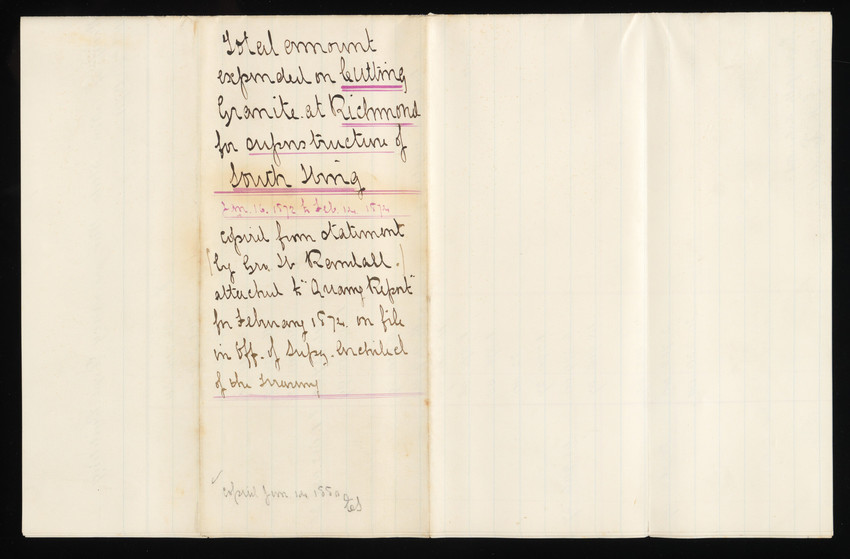 Total amount
expended on Cutting
Granite at Richmond
for superstructure of
South Wing
1872 to Feb. 1874
copied from statement
(by Geo. W Kendall.)
attached to "Quarry Report"
for February 1874. on file
in Off. of Supvg. Architect
of the Treasury
copied 1880